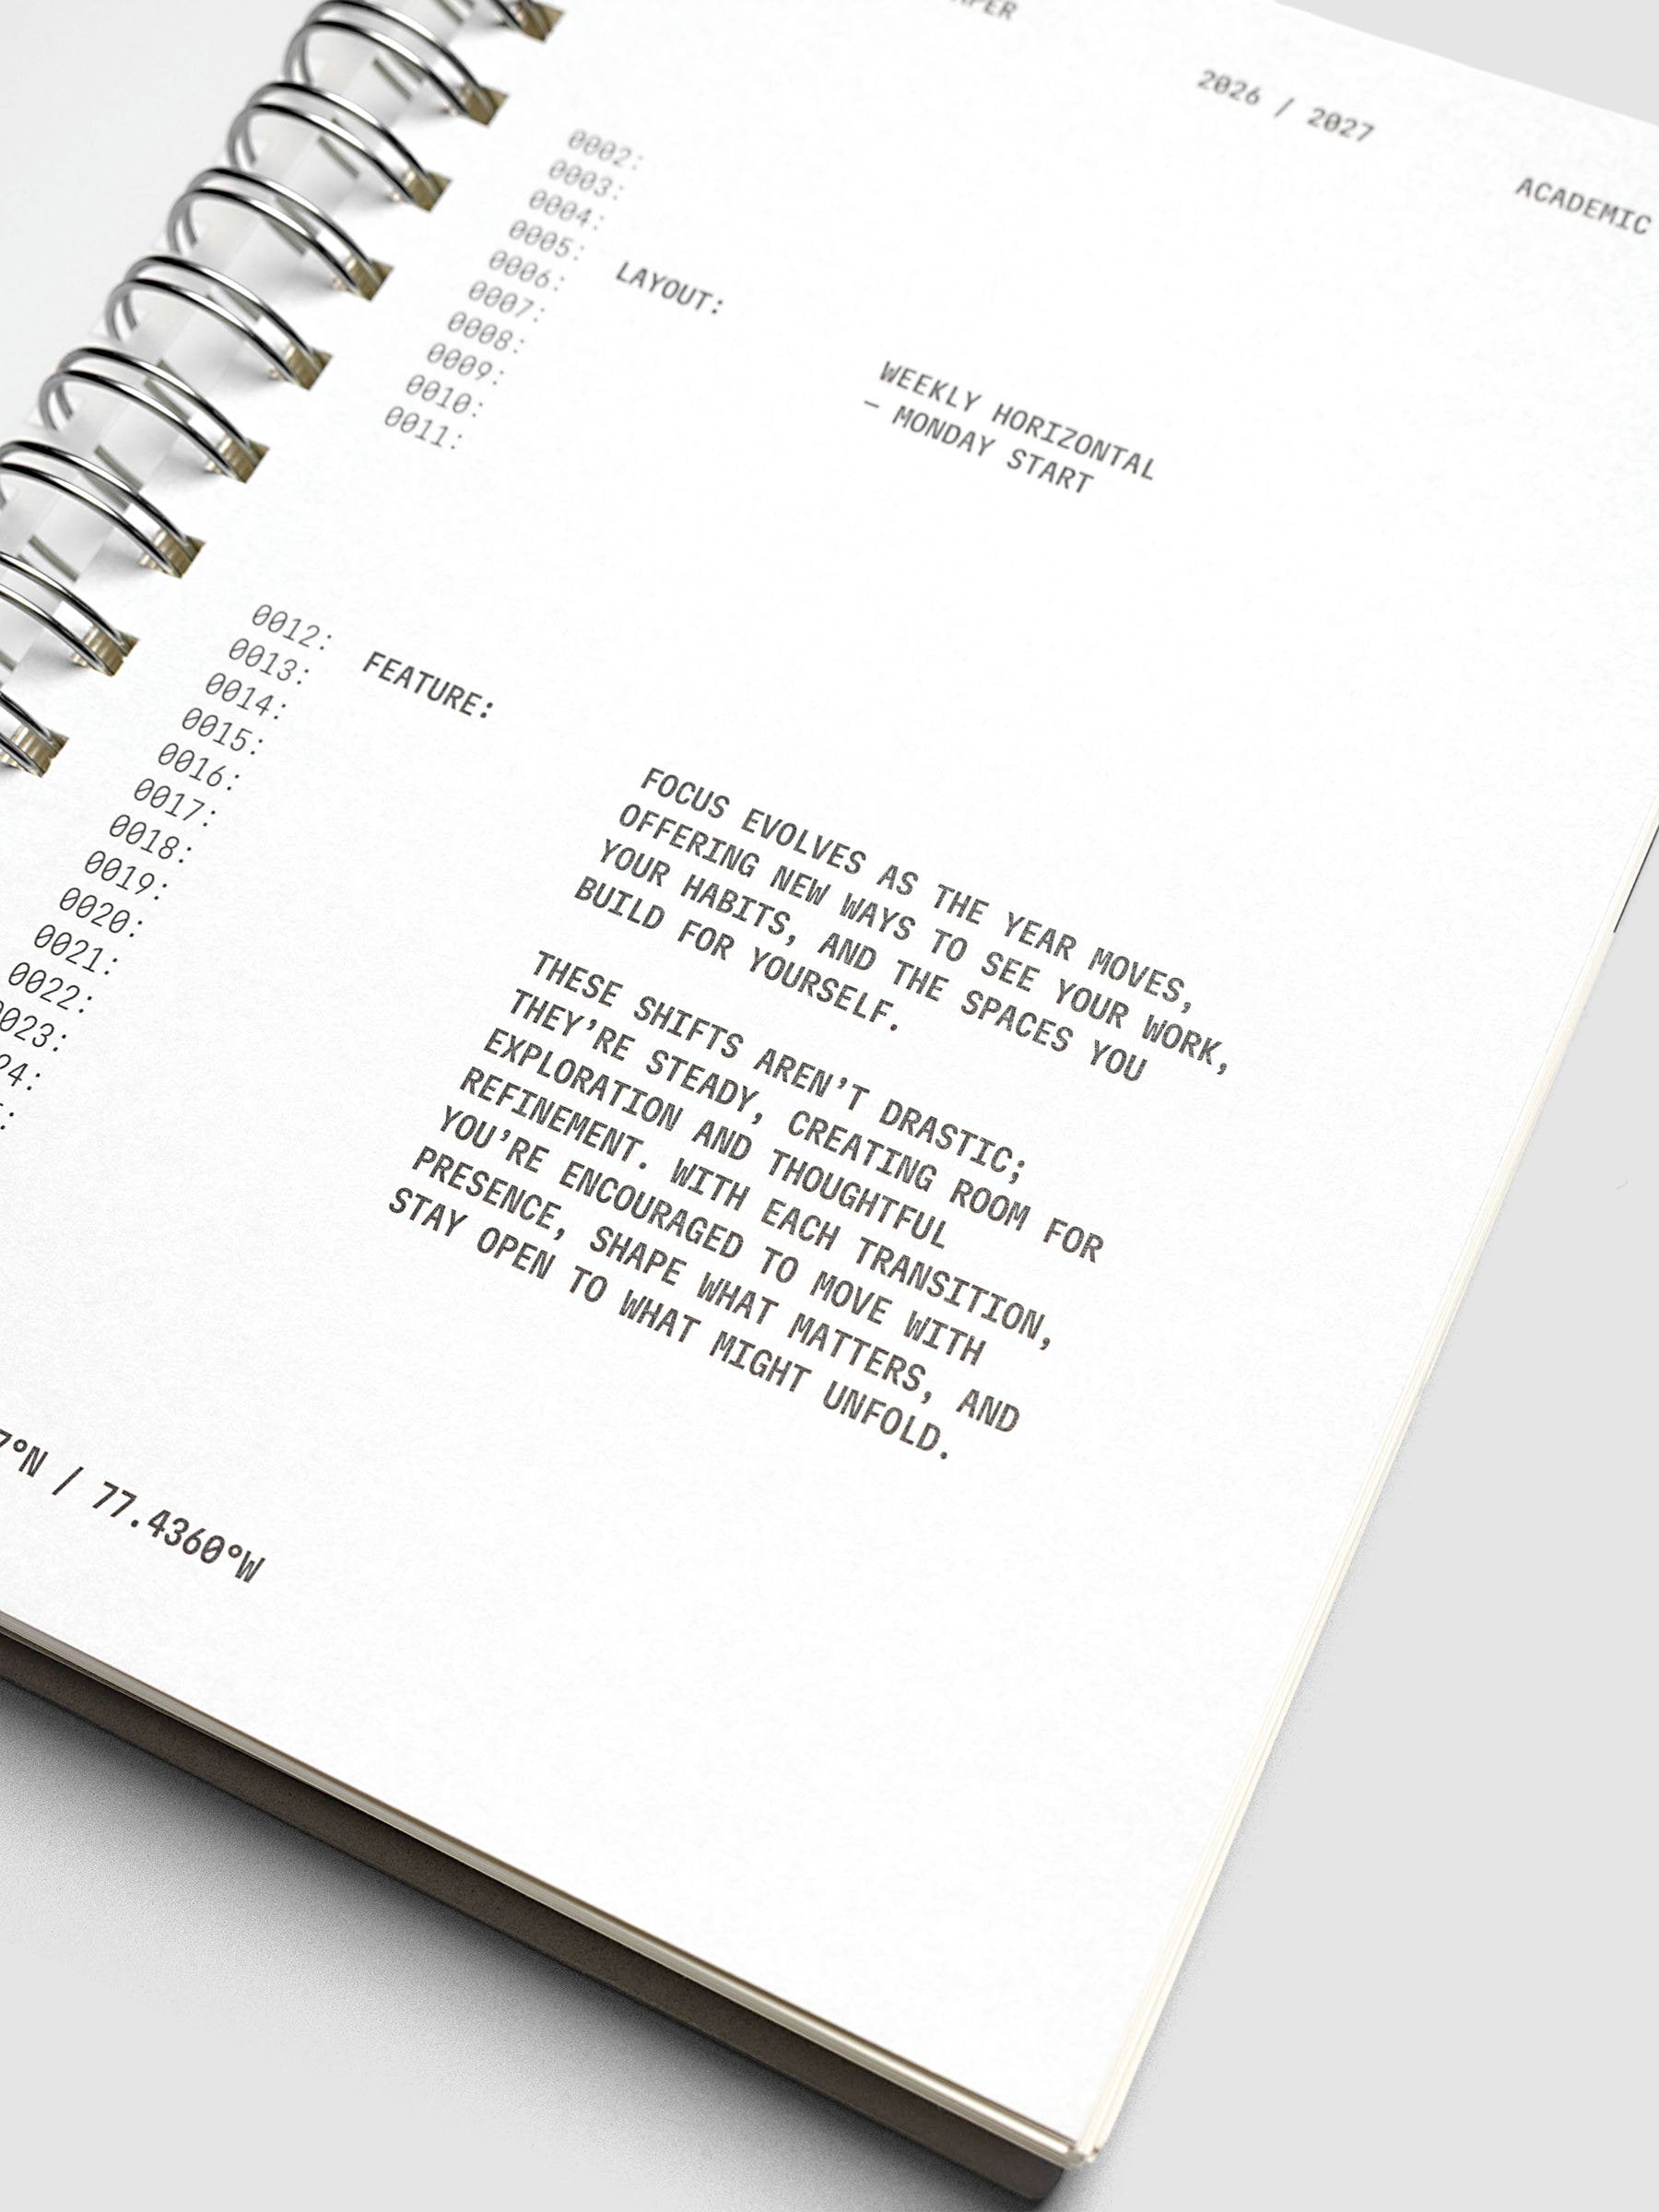 2026 / 2027
ACADEMIC
0002:
0003:
0004:
0005:
0006:
0007:
0008:
0009:
0010:
0011:
LAYOUT:
WEEKLY HORIZONTAL
– MONDAY START
0012:
0013:
0014:
0015:
0016:
0017:
0018:
0019:
0020:
0021:
0022:
023:
24:
FEATURE:
FOCUS EVOLVES AS THE YEAR MOVES,
OFFERING NEW WAYS TO SEE YOUR WORK,
YOUR HABITS, AND THE SPACES YOU
BUILD FOR YOURSELF.
THESE SHIFTS AREN’T DRASTIC;
THEY’RE STEADY, CREATING ROOM FOR
EXPLORATION AND THOUGHTFUL
REFINEMENT. WITH EACH TRANSITION,
YOU’RE ENCOURAGED TO MOVE WITH
PRESENCE, SHAPE WHAT MATTERS, AND
STAY OPEN TO WHAT MIGHT UNFOLD.
7°N / 77.4360°W